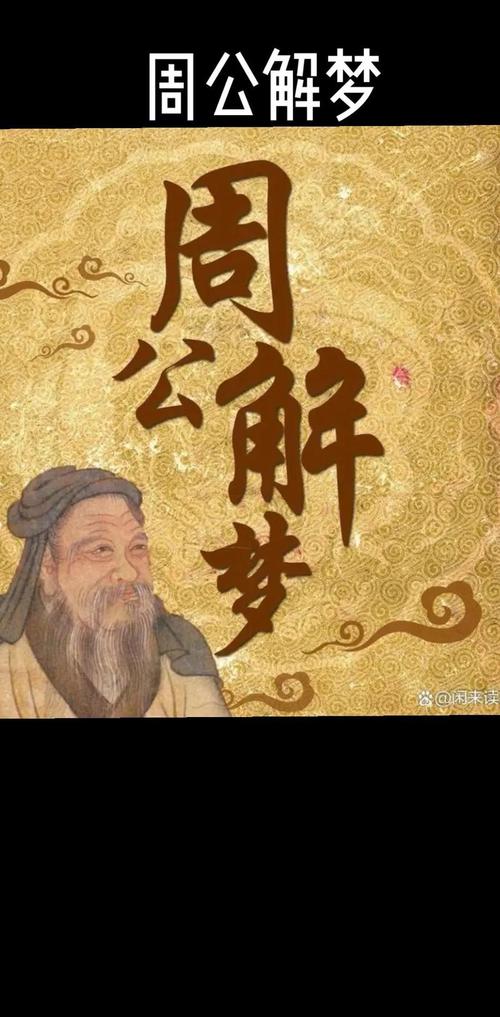 周公解梦
周
公
解
梦
@闲来读